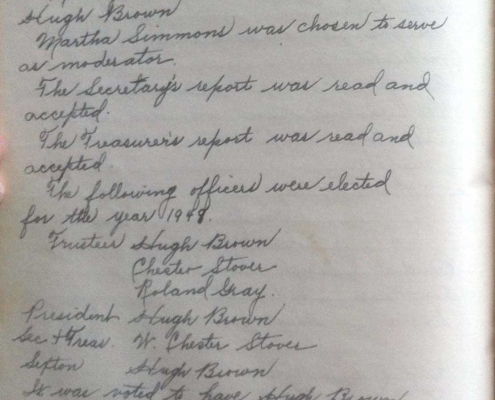 Hugh Brown
Martha Simmons was chosen to serve
as moderator.
The Secretary's report was read and
accepted.
The Treasurer's report was read and
accepted.
The following officers were elected
for the year 1948.
Trustees Hugh Brown
Chester Stover
Roland Gray.
President Hugh Brown
Sec & Treas. W. Chester Stover
Sexton Hugh Brown
It was voted to have Hugh Brown